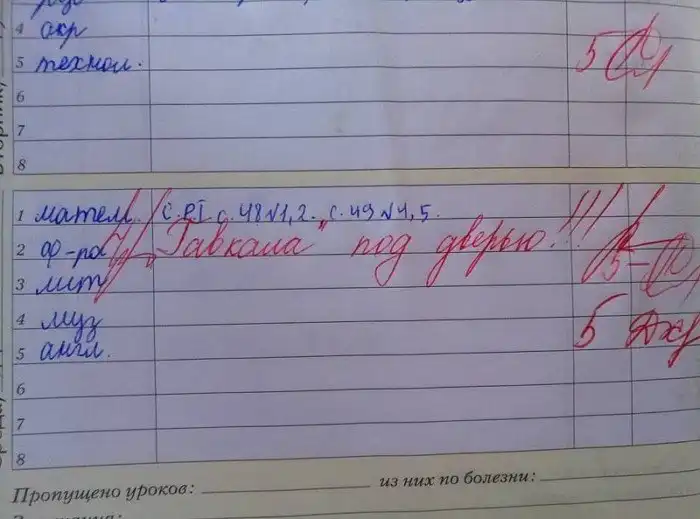 4 окр
5 технол. 5
6
7
8
1 матем. с. РТ. с. 48 №1, 2. с. 49 №4, 5.
2 ф-ра "Гавкала" под дверью!!!
3 лит 5-
4 муз 5
5 англ.
6
7
8
Пропущено уроков: из них по болезни: